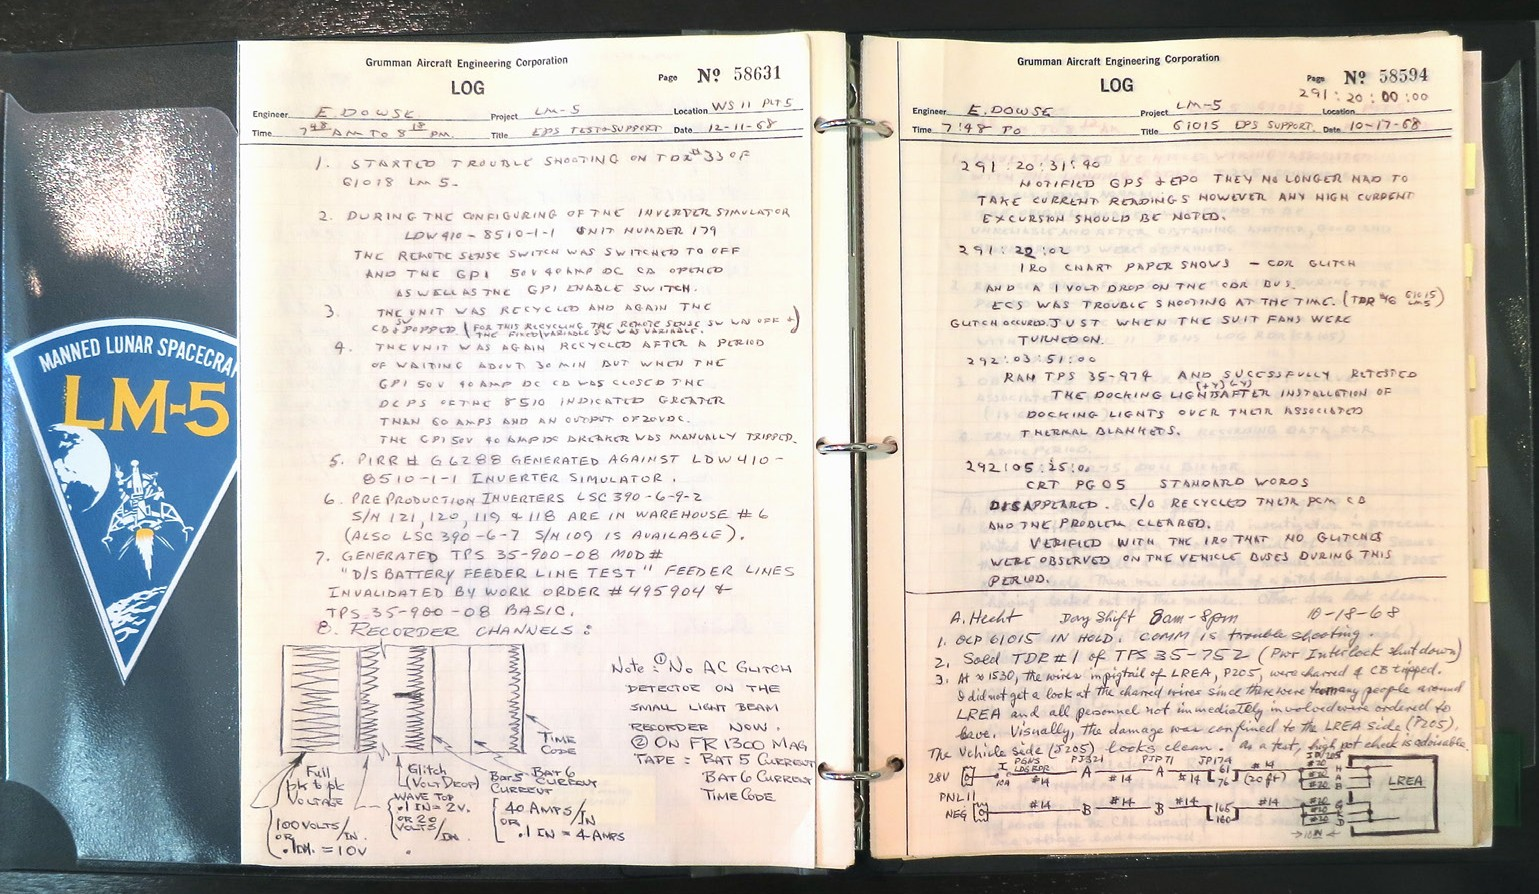 MANNED LUNAR SPACECRA
LM-5
Grumman Aircraft Engineering Corporation
LOG
Page Nº 58631
Engineer E. DOWSE Project LM-5 Location WS 11 PLT 5
Time 7 48 AM TO 8 18 PM. Title EPS TEST & SUPPORT Date 12-11-68
1. STARTED TROUBLE SHOOTING ON TDR #33 OF
61018 LM 5.
2. DURING THE CONFIGURING OF THE INVERTER SIMULATOR
LDW 410-8510-1-1 UNIT NUMBER 179
THE REMOTE SENSE SWITCH WAS SWITCHED TO OFF
AND THE GPI 50V 40 AMP DC CB OPENED
AS WELL AS THE GPI ENABLE SWITCH.
3. THE UNIT WAS RECYCLED AND AGAIN THE
CB & SW POPPED. (FOR THIS RECYCLING THE REMOTE SENSE SW WAS OFF +
THE FIXED/VARIABLE SW WAS VARIABLE.)
4. THE UNIT WAS AGAIN RECYCLED AFTER A PERIOD
OF WAITING ABOUT 30 MIN BUT WHEN THE
GPI 50V 40 AMP DC CB WAS CLOSED THE
DCPS OF THE 8510 INDICATED GREATER
THAN 60 AMPS AND AN OUTPUT OF 20VDC.
THE GPI 50V 40 AMP DC BREAKER WAS MANUALLY TRIPPED.
5. PIRR # G6288 GENERATED AGAINST LDW410-
8510-1-1 INVERTER SIMULATOR.
6. PREPRODUCTION INVERTERS LSC 390-6-9-2
S/N 121, 120, 119 & 118 ARE IN WAREHOUSE #6
(ALSO LSC 390-6-7 S/N 109 IS AVAILABLE).
7. GENERATED TPS 35-900-08 MOD#
"D/S BATTERY FEEDER LINE TEST" FEEDER LINES
INVALIDATED BY WORK ORDER #495904 &
TPS 35-900-08 BASIC.
8. RECORDER CHANNELS:
Note: ① NO AC GLITCH
DETECTOR ON THE
SMALL LIGHT BEAM
RECORDER NOW.
② ON FR 1300 MAG
TAPE: BAT 5 CURRENT
BAT 6 CURRENT
TIME CODE
TIME
CODE
Full
pk to pk
VOLTAGE
100 VOLTS/IN.
OR
.1 IN. = 10V
Glitch
(VOLT DROP)
WAVE TOP
.1 IN = 2V.
OR 20
VOLTS/IN.
BAT 5
CURRENT
BAT 6
CURRENT
40 AMPS/IN
OR
.1 IN = 4 AMPS
Grumman Aircraft Engineering Corporation
LOG
Page Nº 58594
291:20:00:00
Engineer E. DOWSE Project LM-5 Location
Time 7:48 TO Title 61015 EPS SUPPORT. Date 10-17-68
291:20:31:40
NOTIFIED GPS & EPO THEY NO LONGER HAD TO
TAKE CURRENT READINGS HOWEVER ANY HIGH CURRENT
EXCURSION SHOULD BE NOTED.
291:22:02
IRO CHART PAPER SHOWS - CDR GLITCH
AND A 1 VOLT DROP ON THE CDR BUS.
ECS WAS TROUBLE SHOOTING AT THE TIME. (TDR #6 61015 LM-5)
GLITCH OCCURED JUST WHEN THE SUIT FANS WERE
TURNED ON.
292:03:51:00
RAN TPS 35-974 AND SUCESSFULLY RETESTED
THE DOCKING LIGHTS (+Y) (-Y) AFTER INSTALLATION OF
DOCKING LIGHTS OVER THEIR ASSOCIATED
THERMAL BLANKETS.
292:05:
CRT PG 05 STANDARD WORDS
DISAPPEARED. C/O RECYCLED THEIR PCM CB
AND THE PROBLEM CLEARED.
VERIFIED WITH THE IRO THAT NO GLITCHES
WERE OBSERVED ON THE VEHICLE BUSES DURING THIS
PERIOD.
A. Hecht Day Shift 8am-8pm 10-18-68
1. OCP 61015 IN HOLD. COMM is trouble shooting.
2. Sold TDR #1 of TPS 35-752 (Pwr Interlock shut down)
3. At ≈1530, the wires in pigtail of LREA, P205, were charred & CB tripped.
I did not get a look at the charred wires since there were too many people around
LREA and all personnel not immediately involved were ordered to
leave. Visually, the damage was confined to the LREA side (P205).
The vehicle side (J205) looks clean. As a test, high pot check is advisable.
28V PGNS LDG RDR PJ321 PJP71 JP174 JP205
10A #14 A #14 A #14 61 76 #14 (20 ft) #20 LREA
PNL 11
NEG #14 B #14 B #14 165 160 #14 #20